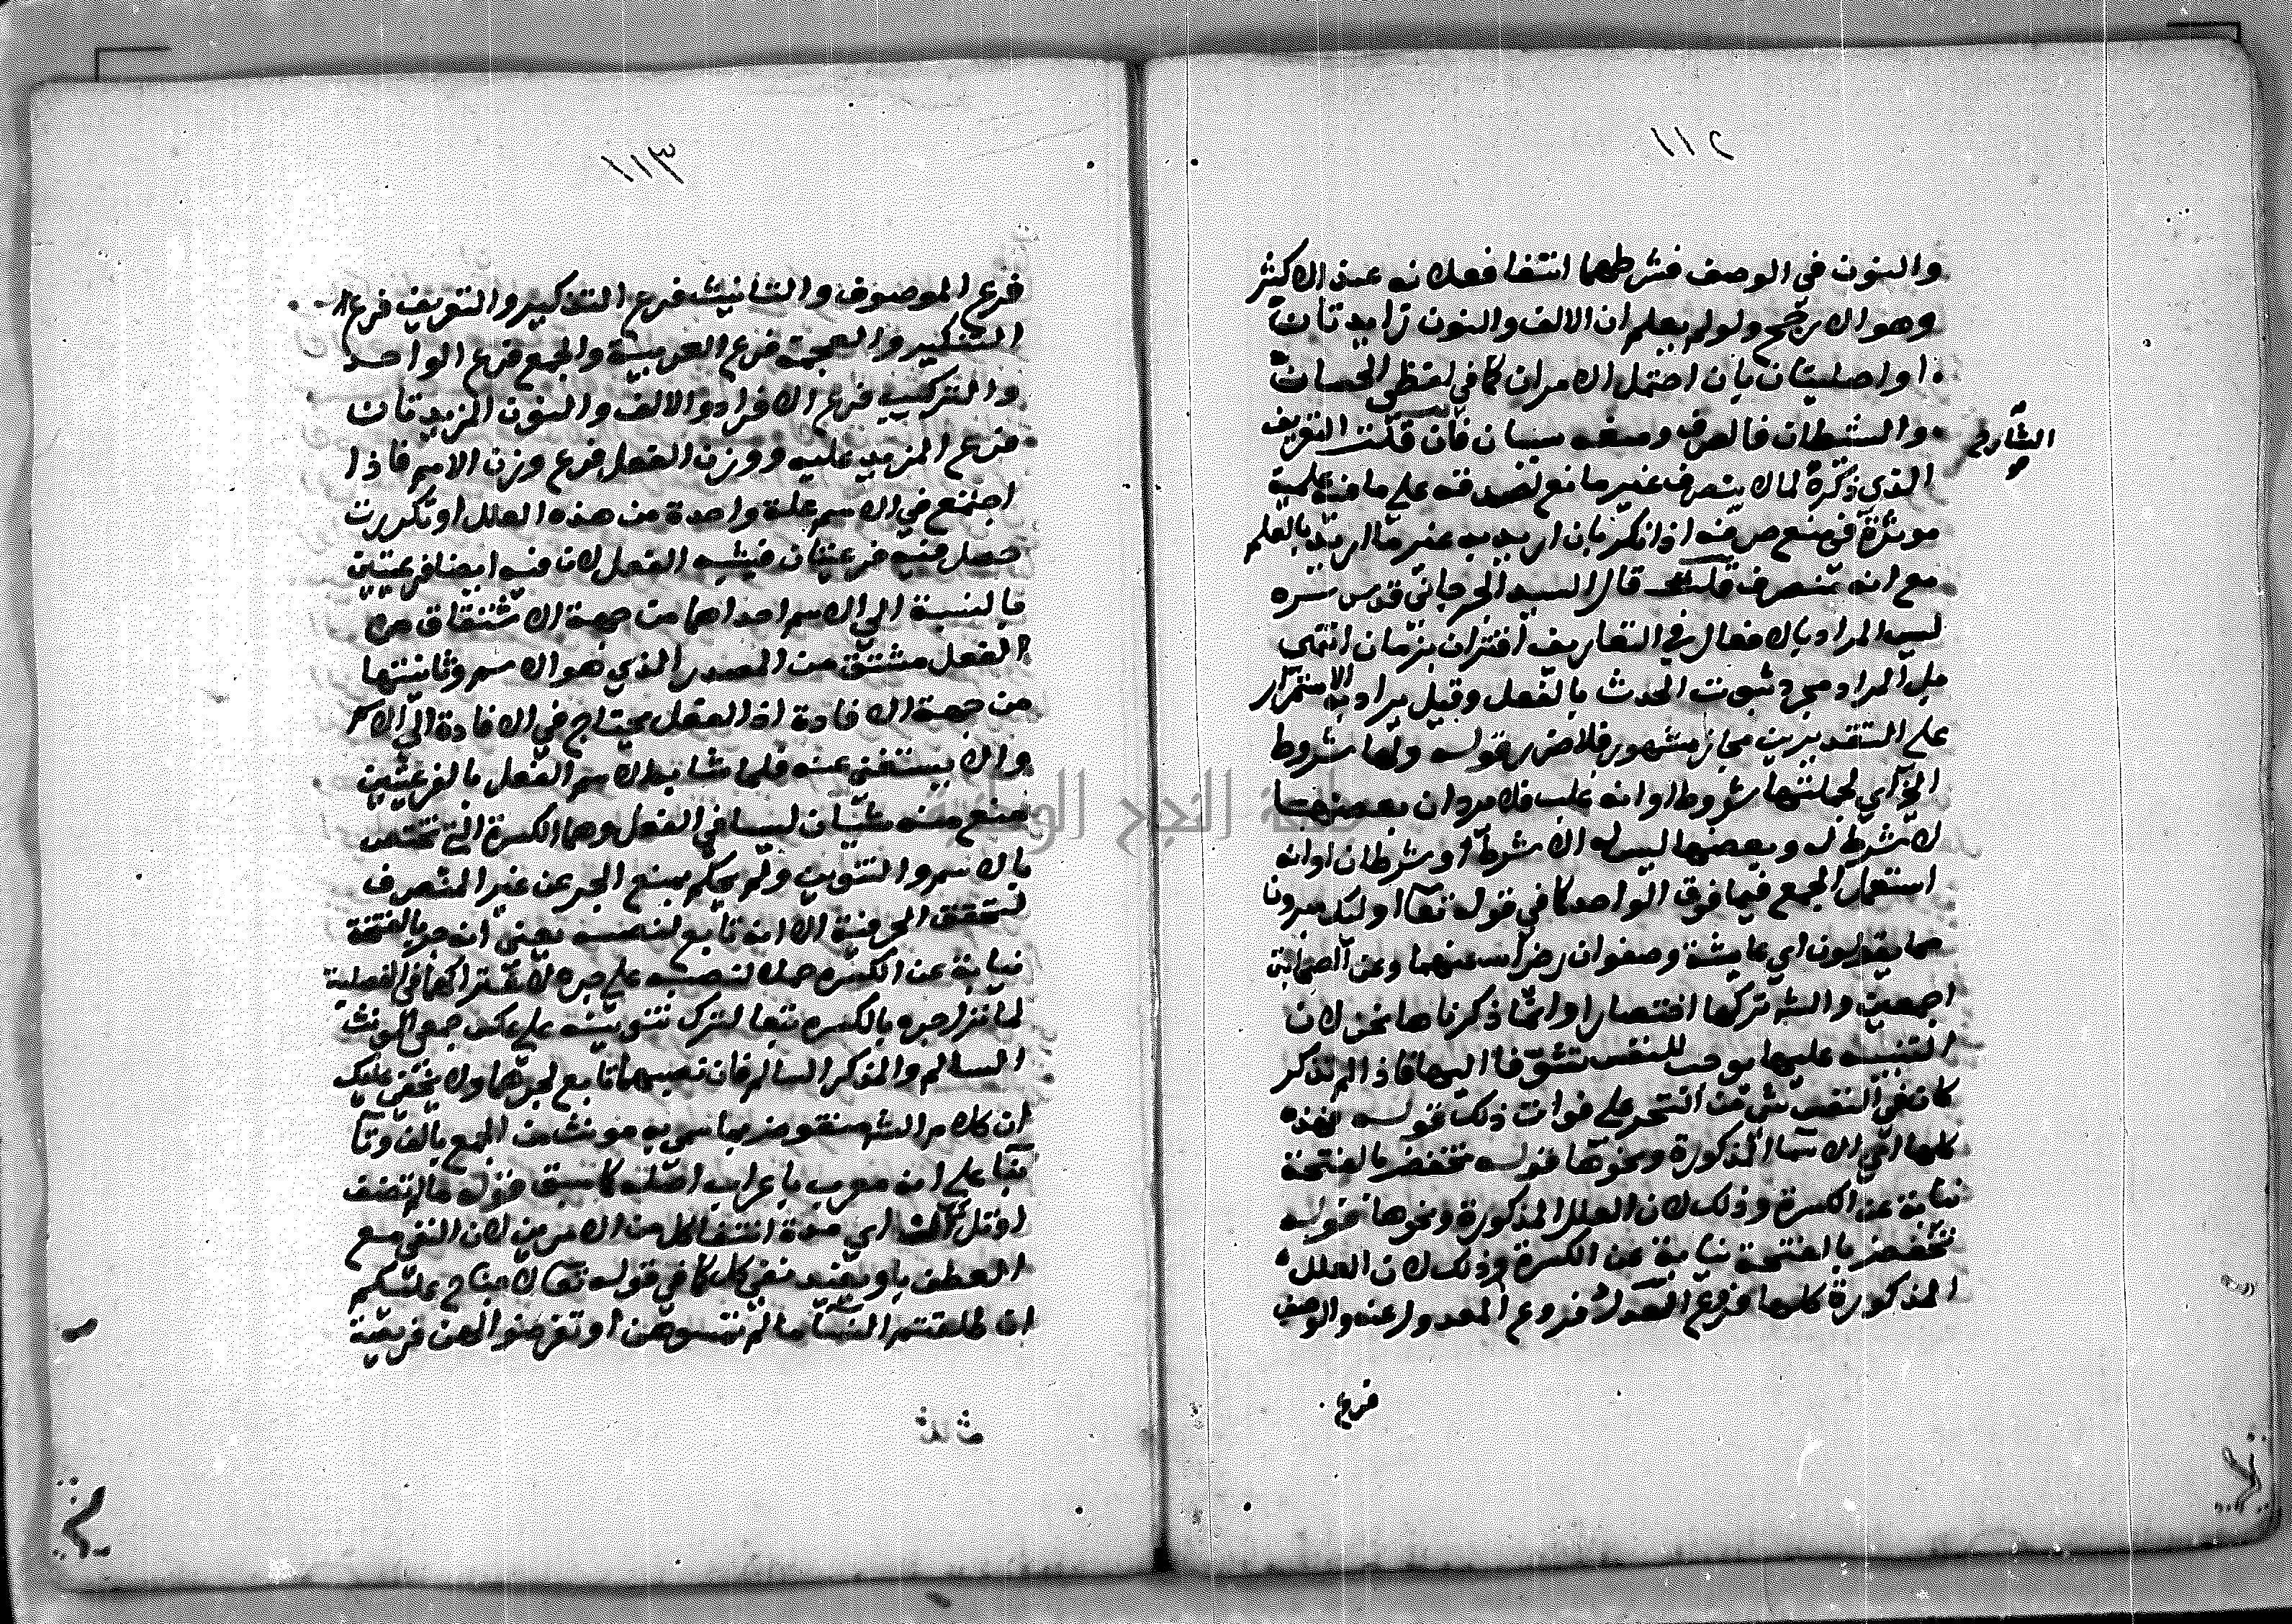 ١١٢
والنون في الوصف فشرطهما انتفا فعلانه عند الاكثر
وهو الارجح ولو لم يعلم ان الالف والنون زايدتان
او اصليتان بان احتمل الامران كما في لفظي الحسان
والشيطان فالصرف ومنعه سيان فان قلت التعريف
الشارح
الذي ذكره لما لا ينصرف غير مانع لصدقه على ما فيه علمية
موثرة في منع صرفه اذا نكر بان اريد به غير ما اريد بالعلم
مع انه منصرف قلت قال السيد الجرجاني قدس سره
ليس المراد بالافعال في التعاريف اقتران بزمان انتهى
بل المراد مجرد ثبوت الحدث بالفعل وقيل يراد به الاستمرار
على التقديرين مجاز مشهور فلا ضرر قوله ولها شروط
الخ اي لجملتها شروط او انه غلب فلا يرد ان بعضها
لا شرط له وبعضها ليس له الا شرط او شرطان او انه
استعمل الجمع فيما فوق الواحد كما في قوله تعا اوليك مبرون
مما يقولون اي عايشة وصفوان رضي الله عنهما وعن الصحابة
اجمعين والش تركها اختصارا وانما ذكرناها نحن لان
التنبيه عليها يوجب للنفس تشوقا اليها فاذا لم تذكر
كان في النفس شي من التحسر على فوات ذلك قوله فهذه
كلها اي الاسما المذكورة ونحوها قوله تخفض بالفتحة
نيابة عن الكسرة وذلك لان العلل المذكورة ونحوها قوله
تخفض بالفتحة نيابة عن الكسرة وذلك لان العلل
المذكورة كلها فروع العدل فروع المعدول عنه والوصف
فرع
١١٣
فرع الموصوف والتانيث فرع التذكير والتعريف فرع
التنكير والعجمة فرع العربية والجمع فرع الواحد
والتركيب فرع الافراد والالف والنون المزيدتان
فرع المزيد عليه ووزن الفعل فرع وزن الاسم فاذا
اجتمع في الاسم علة واحدة من هذه العلل او تكررت
حصل فيه فرعيتان فيشبه الفعل لان فيه ايضا فرعيتين
بالنسبة الى الاسم احداهما من جهة الاشتقاق لان
الفعل مشتق من المصدر الذي هو الاسم وثانيتها
من جهة الافادة اذ الفعل يحتاج في الافادة الى الاسم
والاسم يستغني عنه فلما شابه الاسم الفعل بالفرعيتين
منع منه شيان ليسا في الفعل وهما الكسرة التي تختص
بالاسم والتنوين ولم يحكم بمنع الجر عن غير المنصرف
لتحقق الحرفية الا انه تابع لنصبه يعني انه جر بالفتحة
نيابة عن الكسره حملا لنصبه على جره لاشتراكهما في الفضلية
لما تنزل جره بالكسره تبعا لترك تنوينه على عكس جمعي المونث
السالم والمذكر السالم فان نصبهما تابع لجرهما ولا يخفى عليك
ان كلام الش منقوض بما سمي به مونث من الجمع بالف وتا
بنا على انه معرب باعراب اصله كما سبق قوله ما لم تضف
او تل أل اي مدة انتفا كل من الامرين لان النفي مع
العطف باو يفيد نفي كل كما في قوله تعا لا جناح عليكم
ان طلقتم النسا ما لم تمسوهن او تفرضوا لهن فريضة